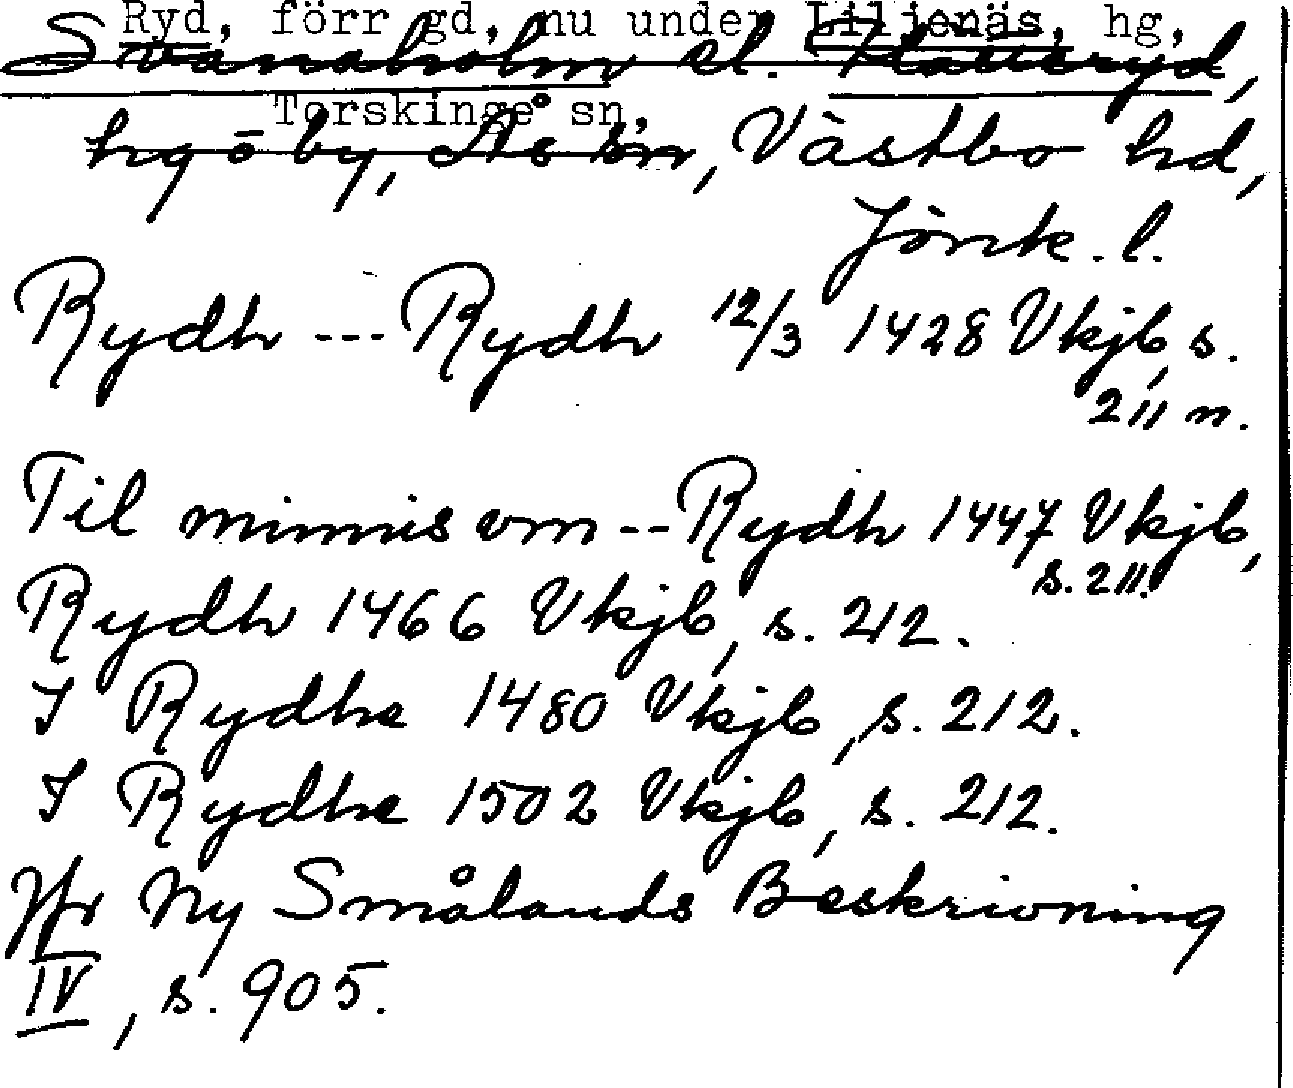 Ryd, förr gd, nu under Liljenäs, hg,
Svanaholm el. Hatteryd,
Torskinge sn,
hg o by, Ås sn, Västbo hd,
Jönk. l.
Rydh --- Rydh 12/3 1428 Vkjb, s.
211 n.
Til minnis om -- Rydh 1447 Vkjb,
s. 211.
Rydh 1466 Vkjb, s. 212.
I Rydhe 1480 Vkjb, s. 212.
I Rydhe 1502 Vkjb, s. 212.
Jfr Ny Smålands Beskrivning
IV, s. 905.